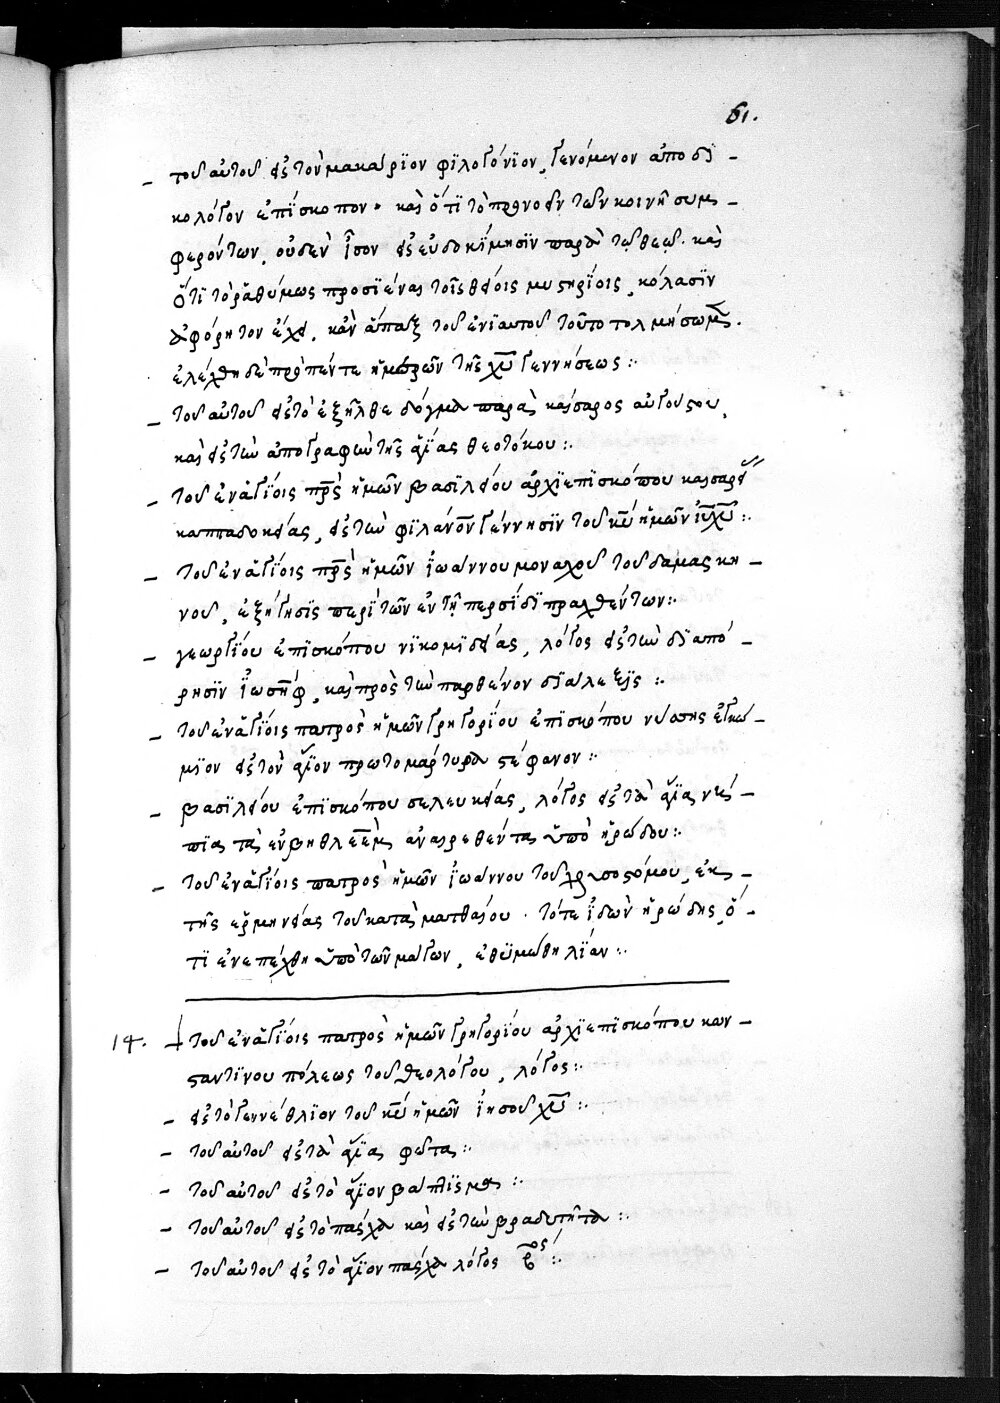 61.
– τοῦ αὐτοῦ εἰς τὸν μακάριον φιλογόνιον, γενόμενον ἀπὸ δι –
κολόγον ἐπίσκοπον· καὶ ὅτι τὸ προνοεῖν τῶν κοινῇ συμ –
φερόντων, οὐδὲν ἴσον εἰς εὐδοκίμησιν παρὰ τῷ θεῷ. καὶ
ὅτι τὸ ῥαθύμως προσϊέναι τοῖς θείοις μυστηρίοις, κόλασιν
ἀφόρητον ἔχει, κἂν ἅπαξ τοῦ ἐνιαυτοῦ τοῦτο τολμήσωμεν.
ἐλέχθη δὲ πρὸ πέντε ἡμερῶν τῆς χῦ γεννήσεως :·
– τοῦ αὐτοῦ εἰς τὸ ἐξῆλθε δόγμα παρὰ καίσαρος αὐγούστου,
καὶ εἰς τὴν ἀπογραφὴν τῆς ἁγίας θεοτόκου :·
– τοῦ ἐν ἁγίοις πρς ἡμῶν βασιλείου ἀρχιεπισκόπου καισαρεί
καππαδοκείας, εἰς τὴν φιλάνον γέννησιν τοῦ κῦ ἡμῶν ιῦ χῦ :·
– τοῦ ἐν ἁγίοις πρς ἡμῶν ἰωάννου μοναχοῦ τοῦ δαμασκη –
νοῦ, ἐξήγησις περὶ τῶν ἐν τῇ περσίδι πραχθέντων :·
– γεωργίου ἐπισκόπου νικομιδείας, λόγος εἰς τὴν διαπό –
ρησιν ἰωσὴφ, καὶ πρὸς τὴν παρθένον διάλεξις :·
– τοῦ ἐν ἁγίοις πατρὸς ἡμῶν γρηγορίου ἐπισκόπου νύσσης ἐγκώ –
μιον εἰς τὸν ἅγιον πρωτομάρτυρα στέφανον :·
– βασιλείου ἐπισκόπου σελευκείας, λόγος εἰς τὰ ἅγια νή –
πια τὰ ἐν βηθλεὲμ ἀναιρεθέντα ὑπὸ ἡρώδου :·
– τοῦ ἐν ἁγίοις πατρὸς ἡμῶν ἰωάννου τοῦ χρυσοστόμου, ἐκ –
τῆς ἑρμηνείας τοῦ κατὰ ματθαίου. τότε ἰδὼν ἡρώδης, ὅ –
τι ἐνεπαίχθη ὑπὸ τῶν μάγων, ἐθυμώθη λίαν :·
14. – τοῦ ἐν ἁγίοις πατρὸς ἡμῶν γρηγορίου ἀρχιεπισκόπου κων –
σταντίνου πόλεως τοῦ θεολόγου, λόγος :·
– εἰς τὸ γεννέθλιον τοῦ κῦ ἡμῶν ἰησοῦ χῦ :·
– τοῦ αὐτοῦ εἰς τὰ ἅγια φῶτα :·
– τοῦ αὐτοῦ εἰς τὸ ἅγιον βάπτισμα :·
– τοῦ αὐτοῦ εἰς τὸ πάσχα καὶ εἰς τὴν βραδυτῆτα :·
– τοῦ αὐτοῦ εἰς τὸ ἅγιον πάσχα λόγος